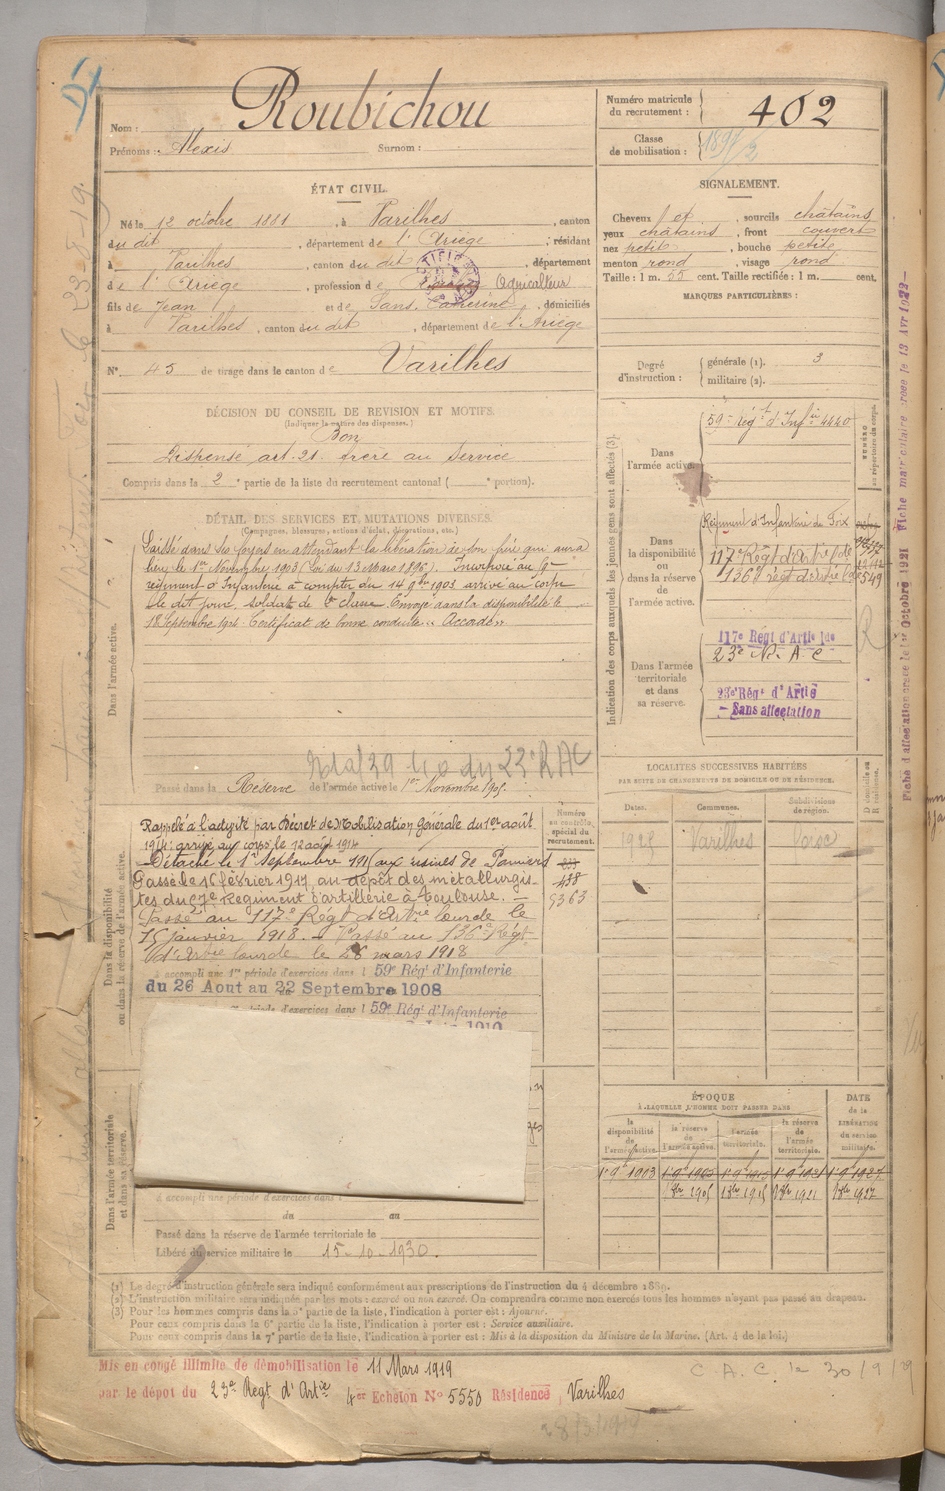 Nom : Roubichou
Prénoms : Alexis Surnom :
Numéro matricule du recrutement : 402
Classe de mobilisation :
ÉTAT CIVIL.
Né le 12 octobre 1881, à Varilhes, canton
du dit, département de l'Ariège, résidant
à Varilhes, canton du dit, département
de l'Ariège, profession de Agriculteur
fils de Jean et de Sans, Catherine, domiciliés
à Varilhes, canton du dit, département de l'Ariège
N° 45 de tirage dans le canton de Varilhes
SIGNALEMENT.
Cheveux et, sourcils châtains
yeux châtains, front couvert
nez petit, bouche petite
menton rond, visage rond
Taille : 1 m. 55 cent. Taille rectifiée : 1 m. cent.
MARQUES PARTICULIÈRES :
Degré d'instruction : générale (1). 3
militaire (2).
DÉCISION DU CONSEIL DE REVISION ET MOTIFS.
(Indiquer la nature des dispenses.)
Bon
Dispensé art. 21. frère au service
Compris dans la 2e partie de la liste du recrutement cantonal ( e portion).
DÉTAIL DES SERVICES ET MUTATIONS DIVERSES.
(Campagnes, blessures, actions d'éclat, décorations, etc.)
Dans l'armée active.
Laissé dans ses foyers en attendant la libération de son frère qui aura
lieu le 1er Novembre 1903 (Loi du 13 Mars 1896). Incorporé au 59e
régiment d'Infanterie à compter du 14 9bre 1903 arrivé au corps
le dit jour, soldat de 2e classe. Envoyé dans la disponibilité le
18 Septembre 1904. Certificat de bonne conduite "Accordé".
du 23e RAC
Passé dans la Réserve de l'armée active le 1er Novembre 1905
Indication des corps auxquels les jeunes gens sont affectés (3).
Dans l'armée active.
59e Régt d'Infie 4440
NUMÉRO au répertoire du corps.
Dans la disponibilité ou dans la réserve de l'armée active.
Régiment d'Infanterie de Foix
117e Régt d'artie lde
136e régt d'artie lde 549
Dans l'armée territoriale et dans sa réserve.
117e Régt d'Artie lde
23e R. A. C
23e Régt d'Artie
- Sans affectation
Fiche d'affectation créée le 1er Octobre 1921 Fiche matriculaire créée le 13 Avr 1923 -
LOCALITES SUCCESSIVES HABITÉES
PAR SUITE DE CHANGEMENTS DE DOMICILE OU DE RÉSIDENCE.
Dates. Communes. Subdivisions de région. D domicile ou R résidence.
1925 Varilhes Foix
Dans la disponibilité ou dans la réserve de l'armée active.
Numéro au contrôle spécial du recrutement.
Rappelé à l'activité par Décret de Mobilisation Générale du 1er août
1914; arrivé au corps le 12 août 1914
Détaché le 1er Septembre 1915 aux usines de Pamiers
Passé le 16 février 1917 au dépôt des métallurgis-
tes du 57e Régiment d'artillerie à Toulouse. -
Passé au 117e Régt d'Artie lourde le
15 janvier 1918. - Passé au 136e Régt
d'Artie lourde le 26 mars 1918
438
9363
a accompli une 1re période d'exercices dans l 59e Régt d'Infanterie
du 26 Aout au 22 Septembre 1908
période d'exercices dans l 59e Régt d'Infanterie
Dans l'armée territoriale et dans sa réserve.
a accompli une période d'exercices dans
du au
Passé dans la réserve de l'armée territoriale le
Libéré du service militaire le 15-10-1930.
ÉPOQUE
À LAQUELLE L'HOMME DOIT PASSER DANS
la disponibilité de l'armée active. la réserve de l'armée active. l'armée territoriale. la réserve de l'armée territoriale.
DATE de la LIBÉRATION du service militaire.
1er 9bre 1903 1er 9bre 1905 1er 9bre 1915 1er 9bre 1921 1er 9bre 1927
1er 9bre 1905 1er 9bre 1915 1er 9bre 1921 1er 9bre 1927
(1) Le degré d'instruction générale sera indiqué conformément aux prescriptions de l'instruction du 4 décembre 1889.
(2) L'instruction militaire sera indiquée par les mots : exercé ou non exercé. On comprendra comme non exercés tous les hommes n'ayant pas passé au drapeau.
(3) Pour les hommes compris dans la 5e partie de la liste, l'indication à porter est : Ajourné.
Pour ceux compris dans la 6e partie de la liste, l'indication à porter est : Service auxiliaire.
Pour ceux compris dans la 7e partie de la liste, l'indication à porter est : Mis à la disposition du Ministre de la Marine. (Art. 4 de la loi.)
Mis en congé illimité de démobilisation le 11 Mars 1919
par le dépot du 23e Regt d'Artie 4er Echelon N° 5550 Résidence, Varilhes
C. A. C. le 30/9/29
28/3/1919